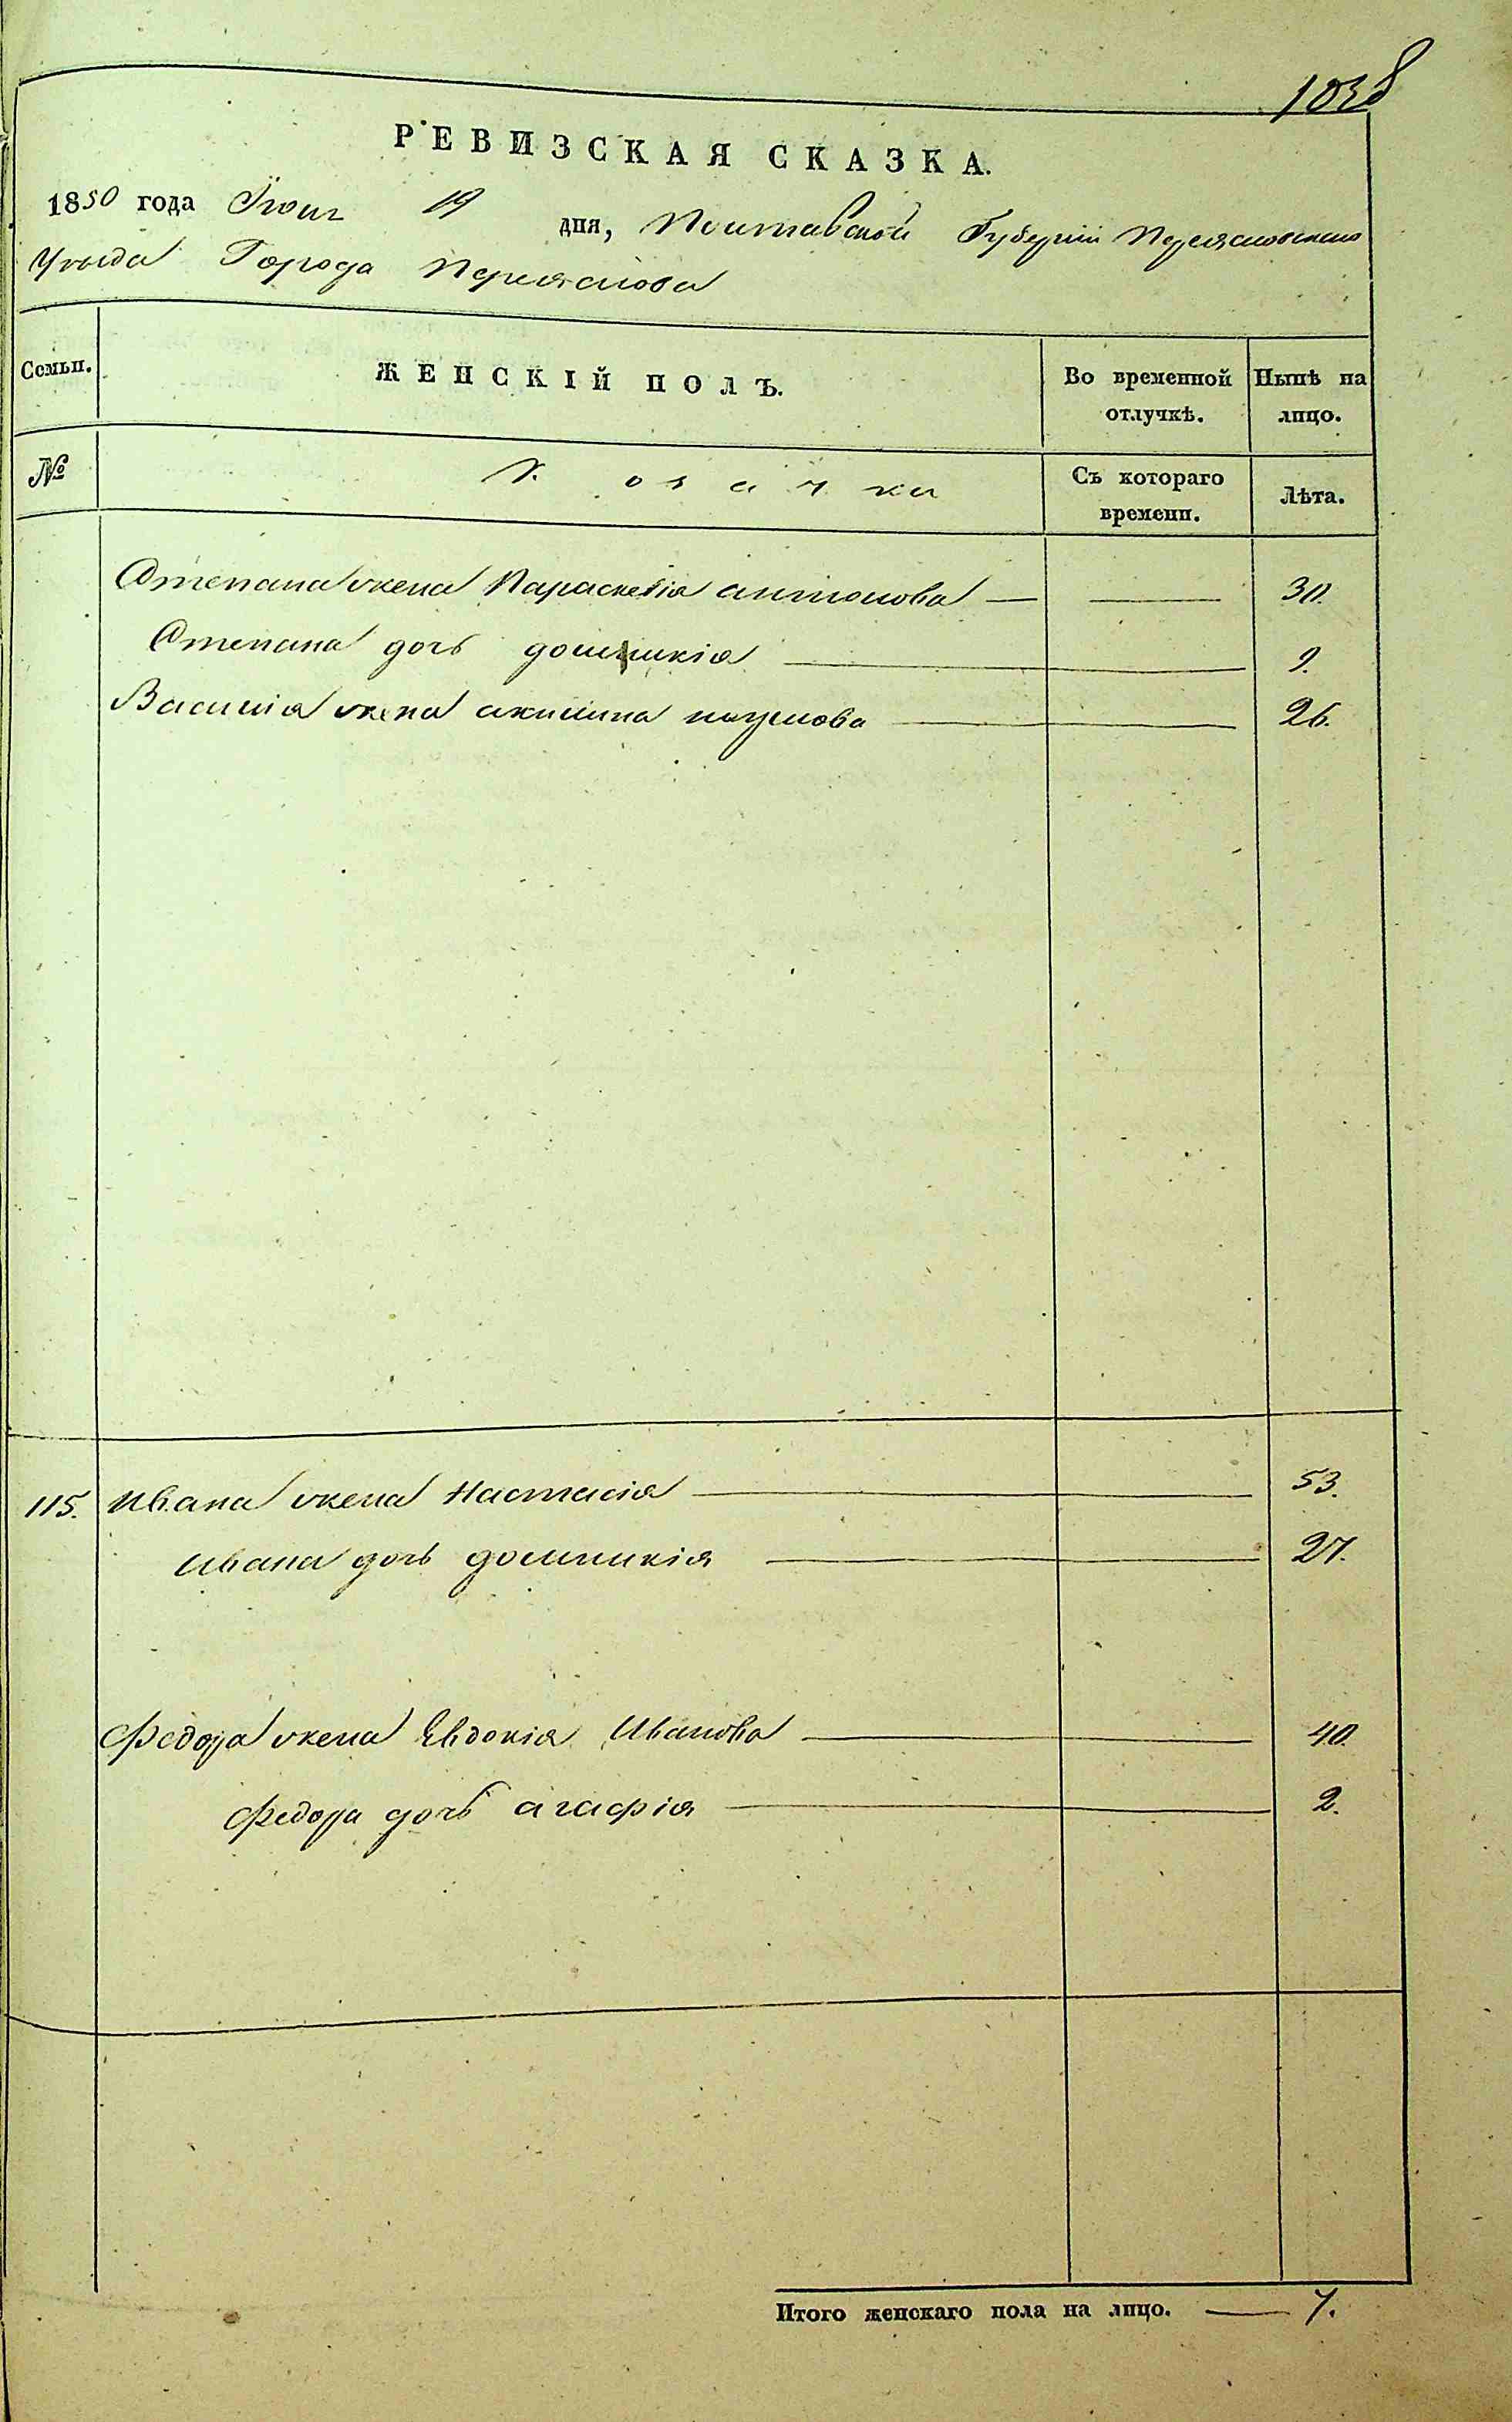 1038
РЕВИЗСКАЯ СКАЗКА.
1850 года Іюня 19 дня, Полтавской Губерніи Переяславскаго
Уезда Города Переяслова
Семьи. ЖЕНСКІЙ ПОЛЪ. Во временной отлучкѣ. Нынѣ на лицо.
№ Козачки Съ котораго времени. Лѣта.
Степана жена Параскевія антонова — — 30.
Степана дочь домникія — 9.
Василія жена акилина наумова — 26.
115. Ивана жена Настасія — 53.
Ивана дочь домникія — 27.
Федора жена Евдокія Иванова — 40.
Федора дочь агафія — 2.
Итого женскаго пола на лицо. — 7.